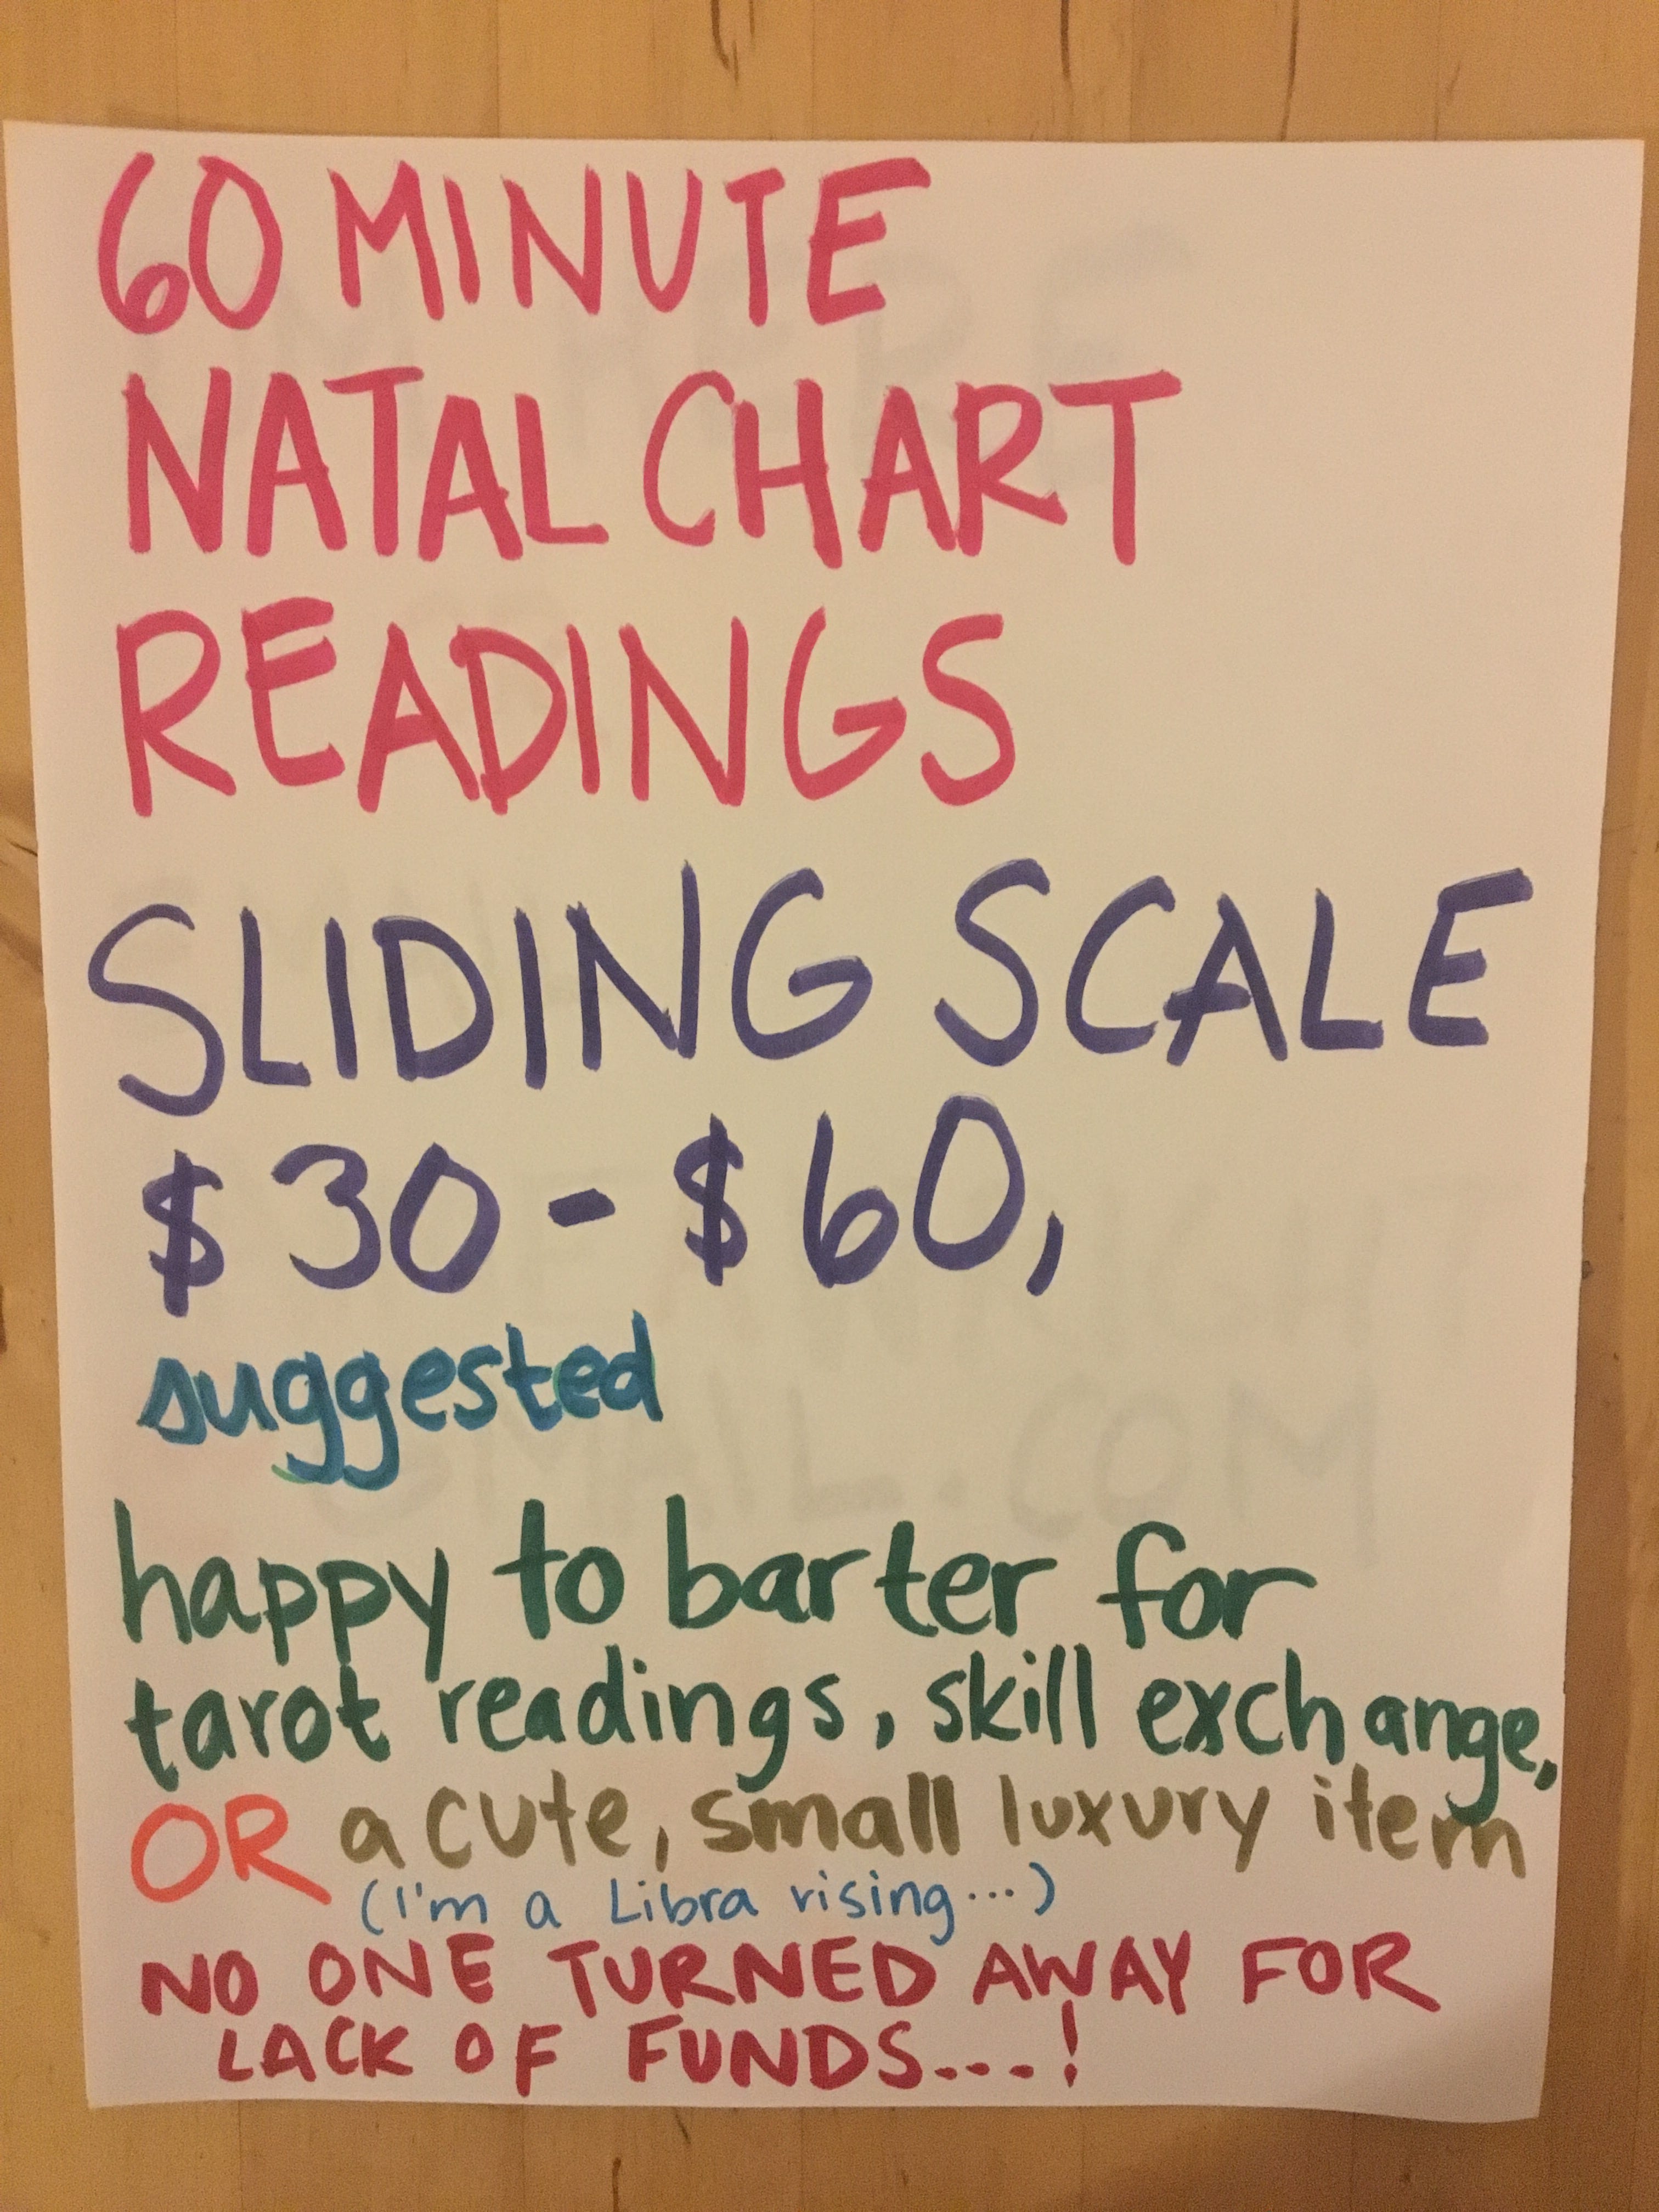 60 MINUTE
NATAL CHART
READINGS
SLIDING SCALE
$30-$60,
suggested
happy to barter for
tarot readings, skill exchange,
OR a cute, small luxury item
(I'm a Libra rising...)
NO ONE TURNED AWAY FOR
LACK OF FUNDS...!